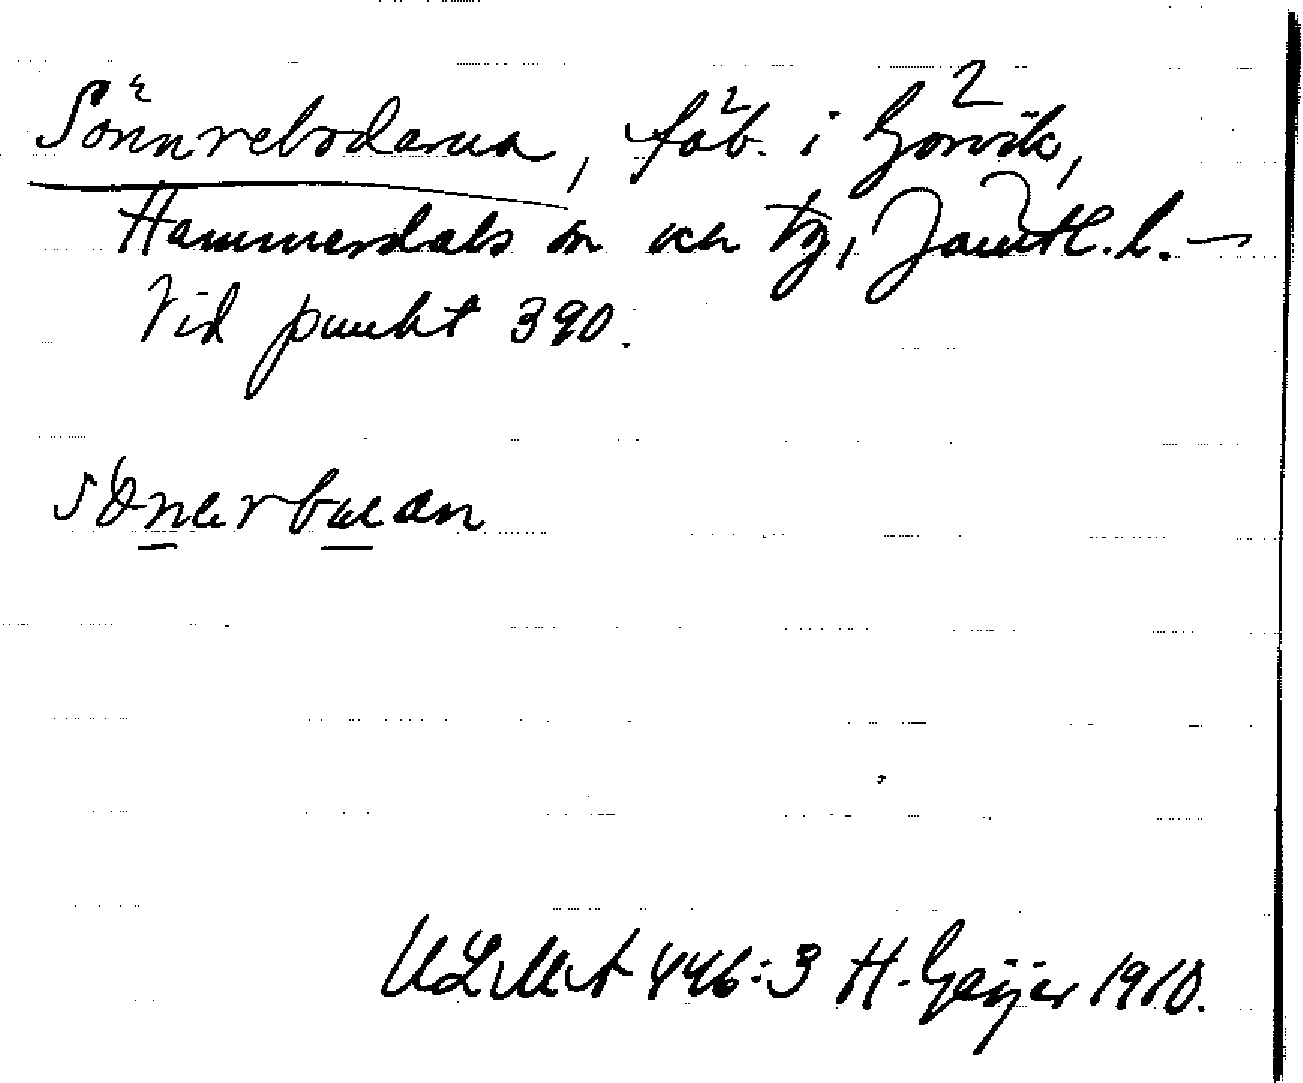 Sönnrebodarna, fäb. i Görvik,
Hammerdals sn och tg, Jämtl. l. —
Vid punkt 390.
sönerbuan
ULMA 446:3 H. Geijer 1910.